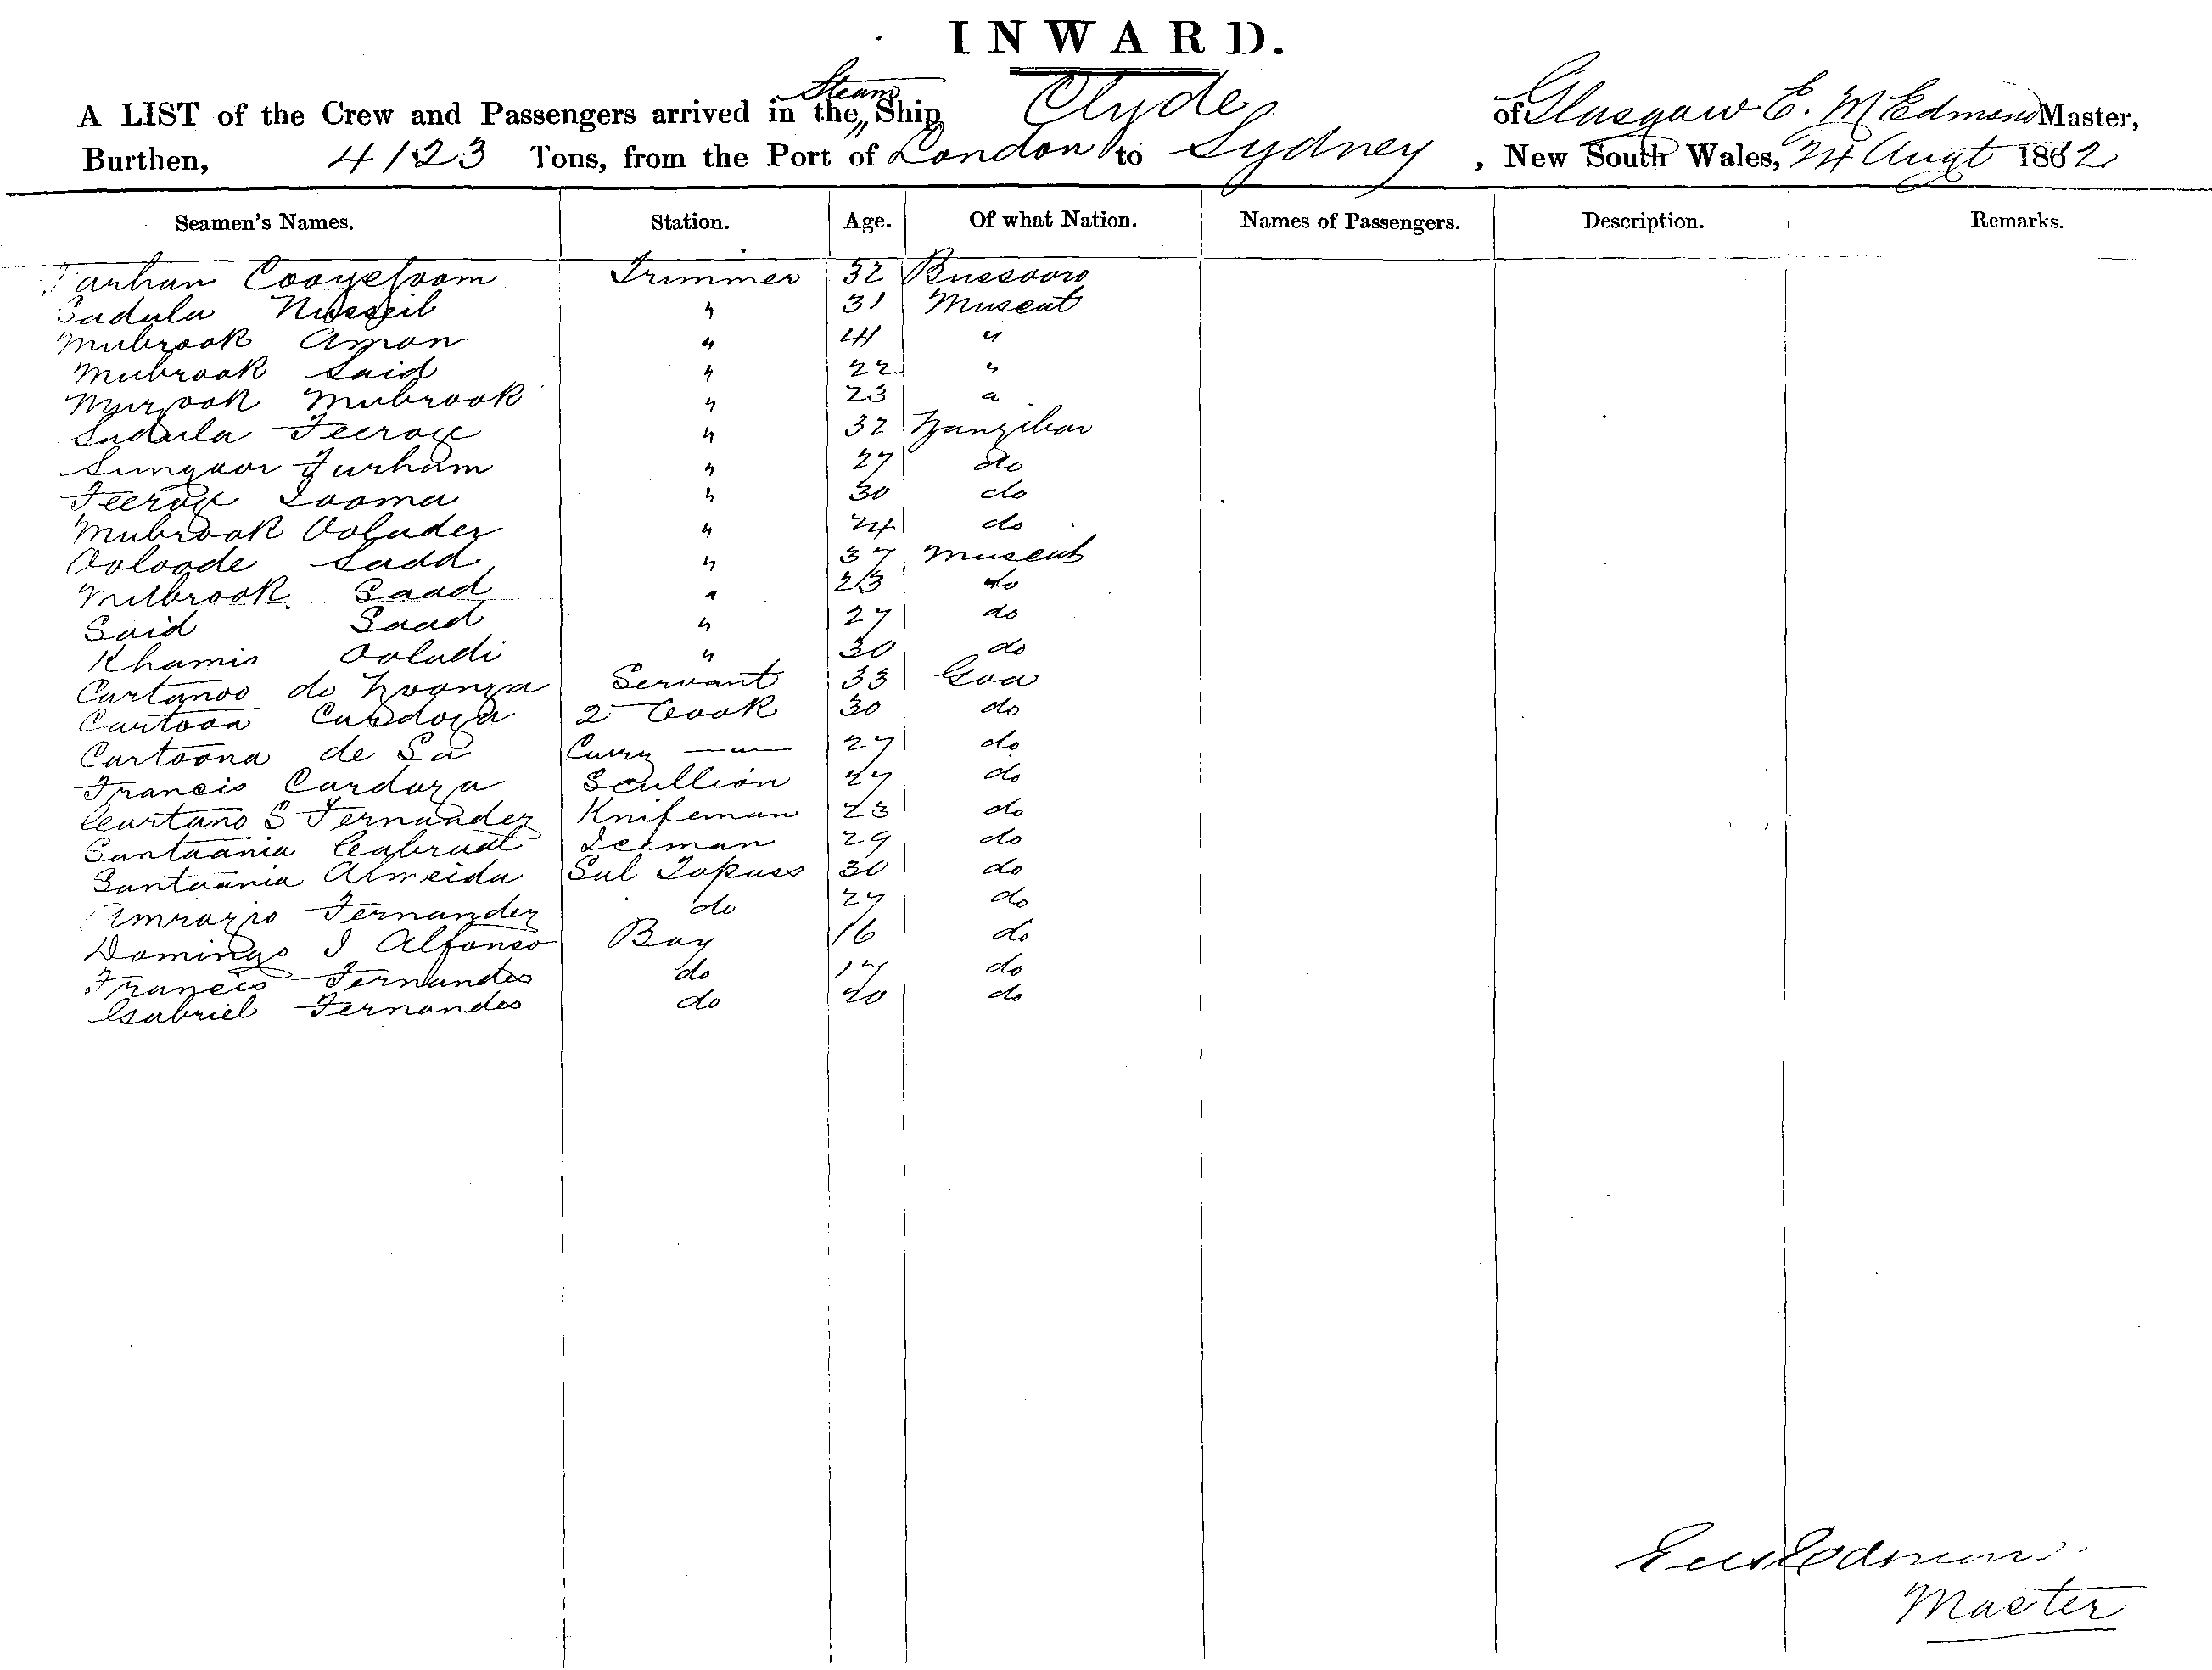 INWARD.
A LIST of the Crew and Passengers arrived in the Steam Ship Clyde of Glasgow E. M Edmond Master,
Burthen, 4123 Tons, from the Port of London to Sydney, New South Wales, 24 Augt 1882
Seamen's Names. Station. Age. Of what Nation. Names of Passengers. Description. Remarks.
Farhan Trimmer 32 Bussoora
Sadula Nusseib " 31 Muscat
Mubrook Aman " 41 "
Mubrook Said " 22 "
Murzook Mubrook " 23 "
Sudula Feeroze " 32 Zanzibar
Sungoor Furham " 27 do
Feeroze Looma " 30 do
Mubrook Ooluder " 24 do
Ooloode Sadd " 37 Muscat
Mubrook Saad " 23 do
Said Saad " 27 do
Khamis Ooludi " 30 do
Cartanoo do Servant 33 Goa
Cartooa Cardoza 2 Cook 30 do
Cartoona de Sa Curry —"— 27 do
Francis Cardoza Scullion 47 do
Caurtano S Fernandez Knifeman 23 do
Santaania Cabraal Iceman 29 do
Santaania Almeida Sal Topass 30 do
Fernandez do 27 do
Domingo J Alfonso Boy 16 do
Francis Fernandes do 17 do
Gabriel Fernandes do 20 do
Master